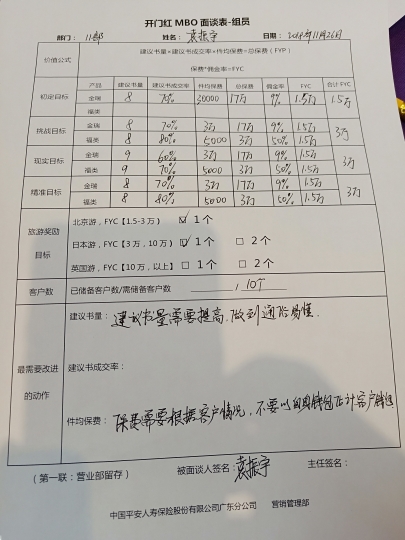 开门红 MBO 面谈表-组员
部门： 11部 姓名： 袁振宇 日期： 2018年11月26日
价值公式 建议书量×建议书成交率×件均保费=总保费（FYP）
保费*佣金率=FYC
产品 建议书量 建议书成交率 件均保费 总保费 佣金率 FYC 合计FYC
初定目标 金瑞 8 70% 30000 17万 9% 1.5万 1.5万
福类
挑战目标 金瑞 8 70% 3万 17万 9% 1.5万 3万
福类 8 80% 5000 3万 50% 1.5万
现实目标 金瑞 9 60% 3万 17万 9% 1.5万 3万
福类 9 70% 5000 3万 50% 1.5万
精准目标 金瑞 8 70% 3万 17万 9% 1.5万 3万
福类 8 80% 5000 3万 50% 1.5万
旅游奖励目标 北京游，FYC【1.5-3 万） ☑ 1 个
日本游，FYC【3 万，10 万） ☑ 1 个 □ 2 个
英国游，FYC【10 万，以上） □ 1 个 □ 2 个
客户数 已储备客户数/需储备客户数 / 10个
最需要改进的动作
建议书量： 建议书量需要提高，做到通俗易懂.
建议书成交率：
件均保费： 保费需要根据客户情况，不要以自己钱包估计客户钱包
（第一联：营业部留存） 被面谈人签名： 袁振宇 主任签名：
中国平安人寿保险股份有限公司广东分公司 营销管理部